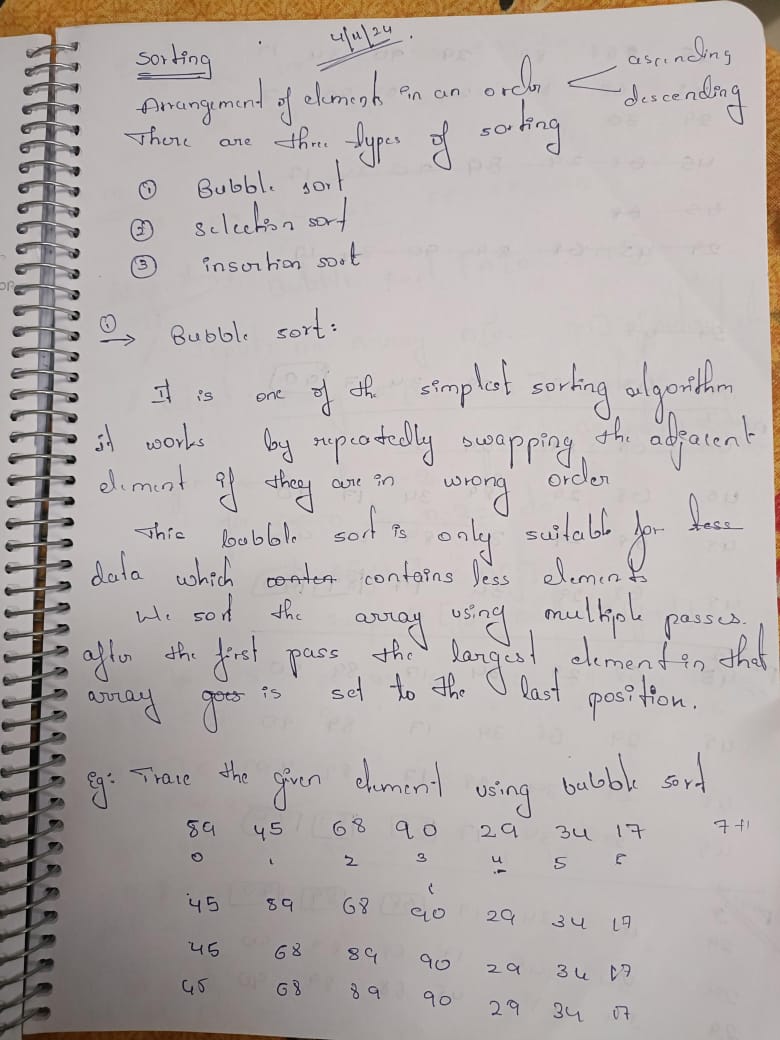 4/11/24.
Sorting
ascending
Arrangement of elements in an order
descending
There are three types of sorting
① Bubble sort
② Selection sort
③ insertion sort
① → Bubble sort:
It is one of the simplest sorting algorithm
it works by repeatedly swapping the adjacent
element if they are in wrong order
This bubble sort is only suitable for less
data which conten contains less elements
We sort the array using multiple passes.
after the first pass the largest element in that
array goes is set to the last position.
Eg: Trace the given element using bubble sort
89 45 68 90 29 34 17
0 1 2 3 4 5
45 89 68 90 29 34 17
45 68 89 90 29 34 17
45 68 89 90 29 34 17